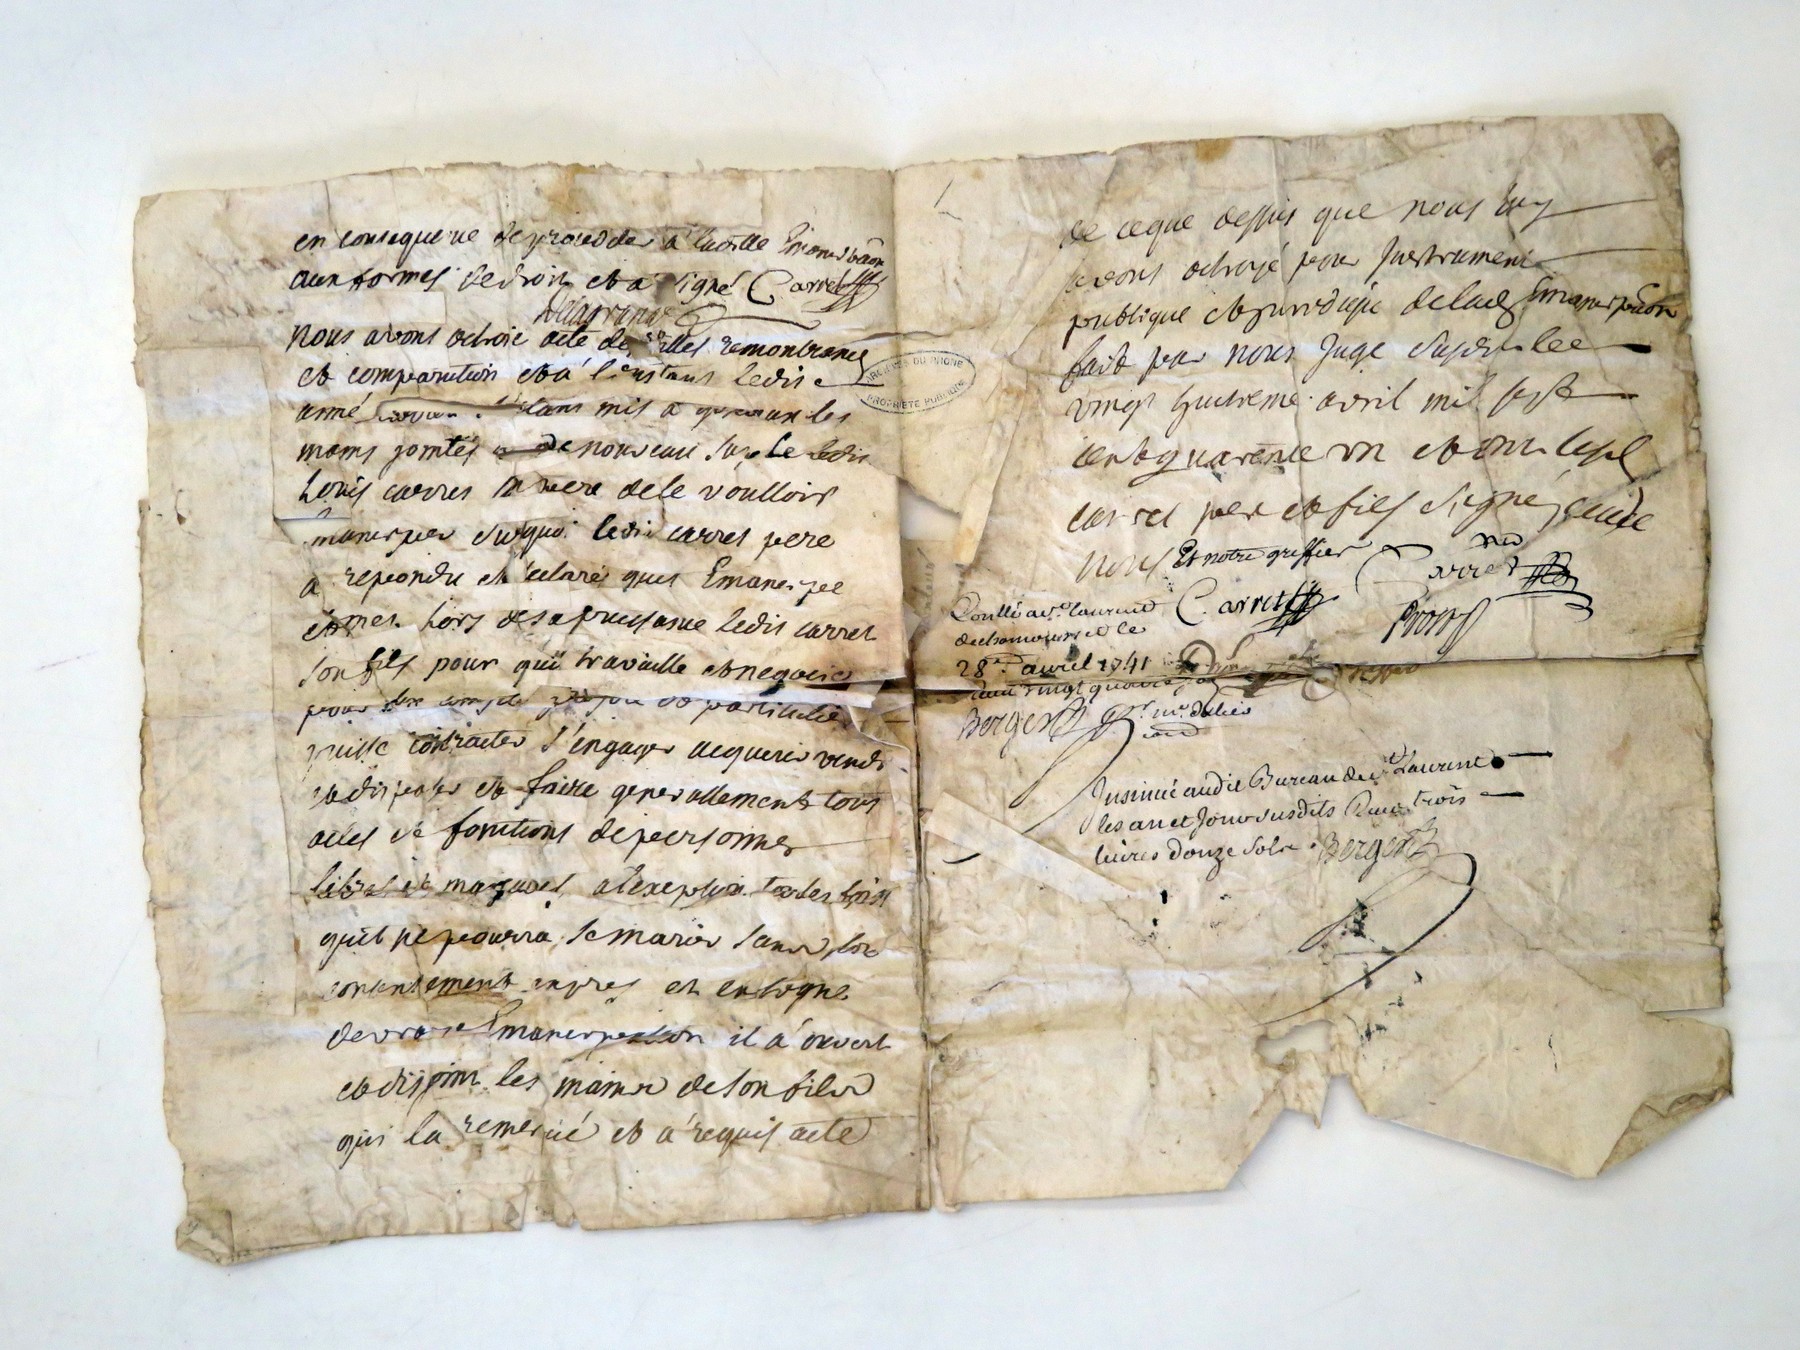 en consequence de proceder a laditte Emancipãon
aux formes de droit et a signé Carret
Delagrange
nous avons octroié acte de remontrances
et comparution et a l'instant ledit
aimé mis a genoux les
mains jointes de nouveau suplie ledit
Louis carret son pere de le voulloir
Emanciper surquoi ledit carret pere
a repondu et declaré quil Emancipe
et met hors de sa puissance ledit carret
son fils pour quil travaille et negocie
pour son compte et particulier
puisse contracter s'engager acquerir vendre
et disposer et faire generallement tous
actes et fonctions de personnes
libres et a l'exeption toutes fois
quil ne pourra se marier sans son
consentement expres et en signe
de vraie Emancipation il a ouvert
et disjoint les mains de son fils
qui la remercié et a requis acte
de ce que dessus que nous luy
avons octroyé pour Instrument
publique et juridique de lad Emancipãon
fait par nous Juge susdit le
vingt huitieme avril mil sept
cent quarente un et ont lesd
carret pere et fils signé avec
nous Et notre greffier
Carret
Carret
Conllé a st laurent
de chamousset le
28e avril 1741
vingt quatre
Berger
Insinué audit Bureau de st Laurent
les an et Jour susdits Reçu trois
livres douze sols Berger
ARCHIVES DU RHONE
PROPRIÉTÉ PUBLIQUE